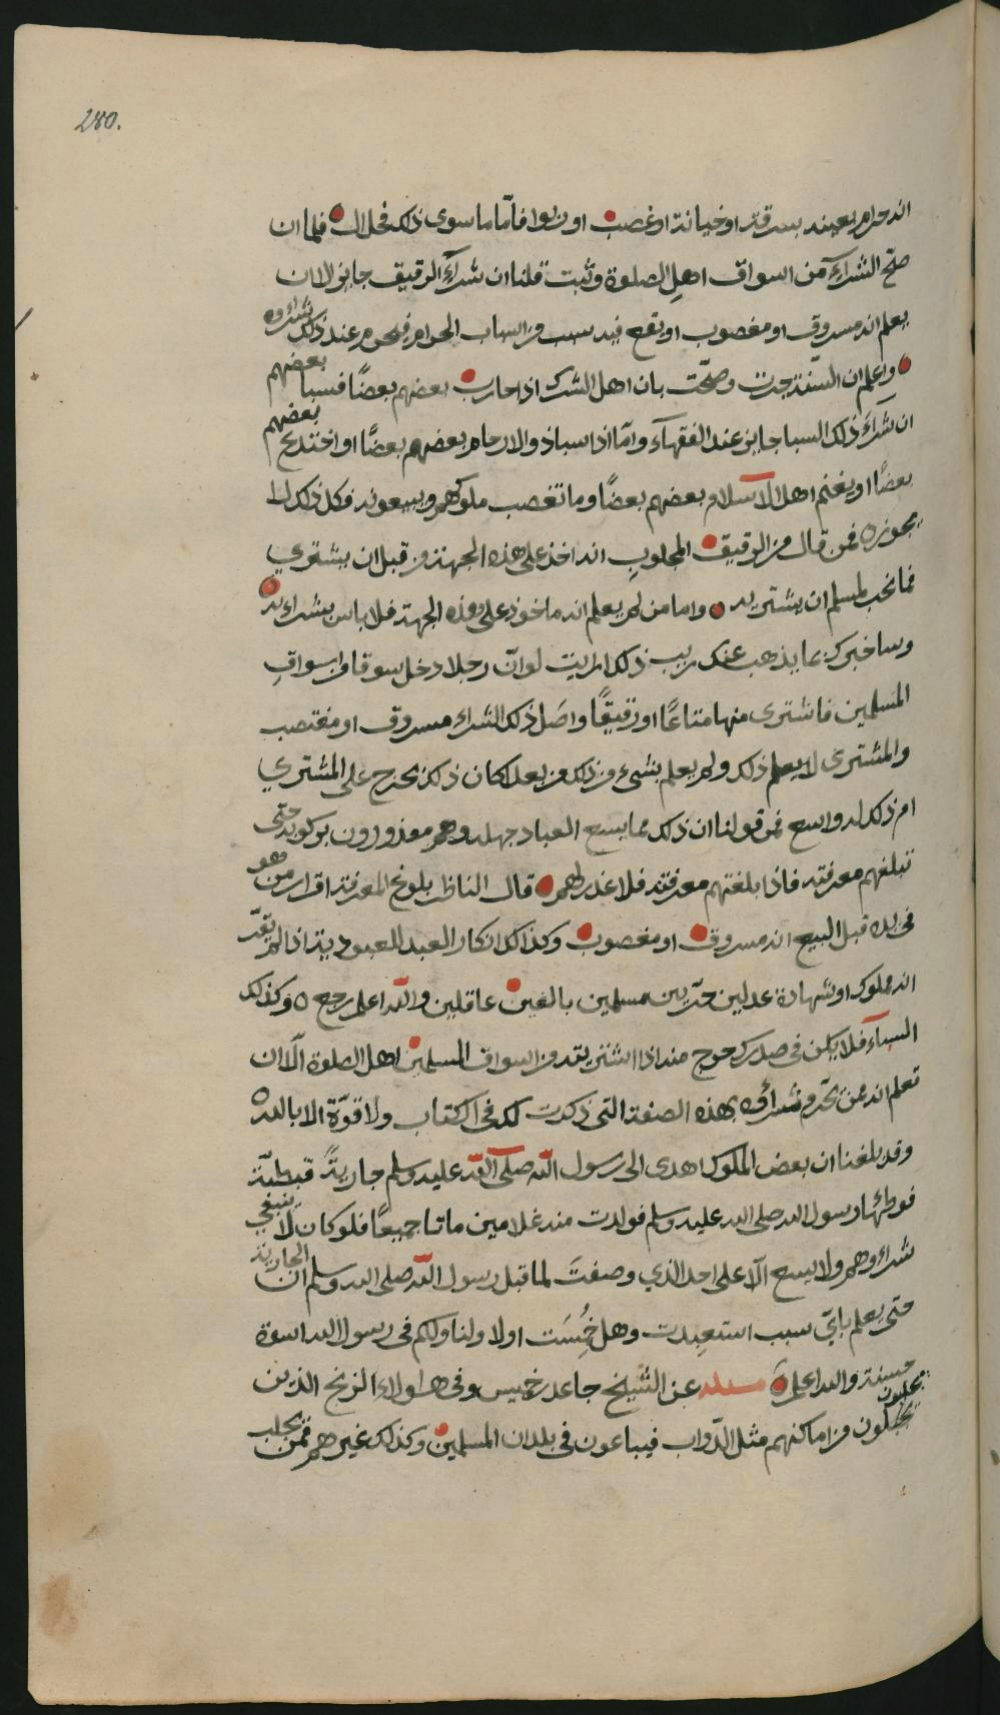 280.
انه حرام بعينه بسرقة او خيانة او غصب او ربوا فاما ما سوى ذلك فحلال فلما ان
صلح الشرآء من اسواق اهل الصلوة وثبت قلنا ان شرآء الرقيق جايز الا ان
يعلم انه مسروق او مغصوب او يقع فيه سبب من اسباب الحرام فيحرم عند ذلك شراوه
واعلم ان السنة جرت وصحت بان اهل الشرك اذا حارب بعضهم بعضًا فسبا بعضهم
ان شرآء ذلك السبا جايز عند الفقهآء وامّا اذا سبا ذو الارحام بعضهم بعضًا او اختدع بعضهم
بعضًا او يغنم اهل الاسلام بعضهم بعضًا وما تغصب ملوكهم ويبيعونه فكل ذلك لا
يجوز ٥ فمن قال من الرقيق المجلوب انه اخذ على هذه الجهة من قبل ان يشترى
فما نحب لمسلم ان يشتريه واما من لم يعلم انه ماخوذ على هذه الجهة فلا باس بشراء به
وساخبرك بما يذهب عنك ريب ذلك ارايت لو انّ رجلا دخل سوقا من اسواق
المسلمين فاشترى منها متاعًا او رقيقًا واصَل ذلك الشراء مسروق او مغتصب
والمشترى لا يعلم ذلك ولم يعلم بشىء من ذلك من بعد اكان ذلك يحرج على المشتري
ام ذلك له واسع فمن قولنا ان ذلك مما يسع العباد جهله وهم معذورون بركوبه حتى
تبلغهم معرفته فاذا بلغتهم معرفته فلا عذر لهم قال الناظر بلوغ المعرفة اقرار من هو
فى يده قبل البيع انه مسروق او مغصوب وكذلك انكار العبد للعبودية اذا لم يقرّ
انه مملوك او شهادة عدلين حرّين مسلمين بالغين عاقلين والله اعلم رجع ٥ وكذلك
السبآء فلا يكن فى صدرك حرج منه اذا اشتريته من اسواق المسلمين اهل الصلوة الّا ان
تعلم انه ممن يحرم شراؤه بهذه الصفة التى ذكرت لك فى الكتاب ولا قوّة الا بالله ٥
وقد بلغنا ان بعض الملوك اهدى الى رسول الله صلى الله عليه وسلم جاريةً قبطيّة
فوطئها رسول الله صلى الله عليه وسلم فولدت منه غلامين ماتا جميعًا فلو كان لا ينبغي
شراوهم ولا يسع الّا على احد الذي وصفتَ لما قبل رسول الله صلى الله وسلم ان الجارية
حتى يعلم باىّ سبب استعبدت وهل خُمسَت اولا ولنا ولكم فى رسول الله اسوة
حسنة والله اعلم مسئلة عن الشيخ جاعد بن خميس وفى هاولاء الزنج الذين
يجلبون من اماكنهم مثل الدّواب فيباعون فى بلدان المسلمين وكذلك غيرهم فمن يجلب
يجلبون